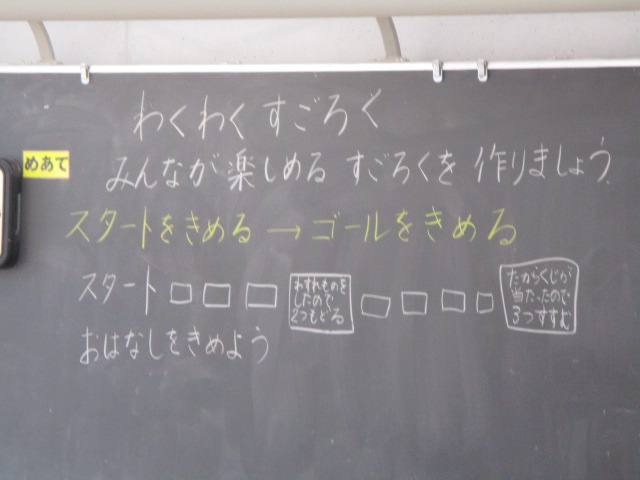 わくわくすごろく
めあて
みんなが楽しめる すごろくを 作りましょう
スタートをきめる → ゴールをきめる
スタート
わすれものを
したので
2つもどる
たからくじが
当たったので
3つすすむ
おはなしをきめよう